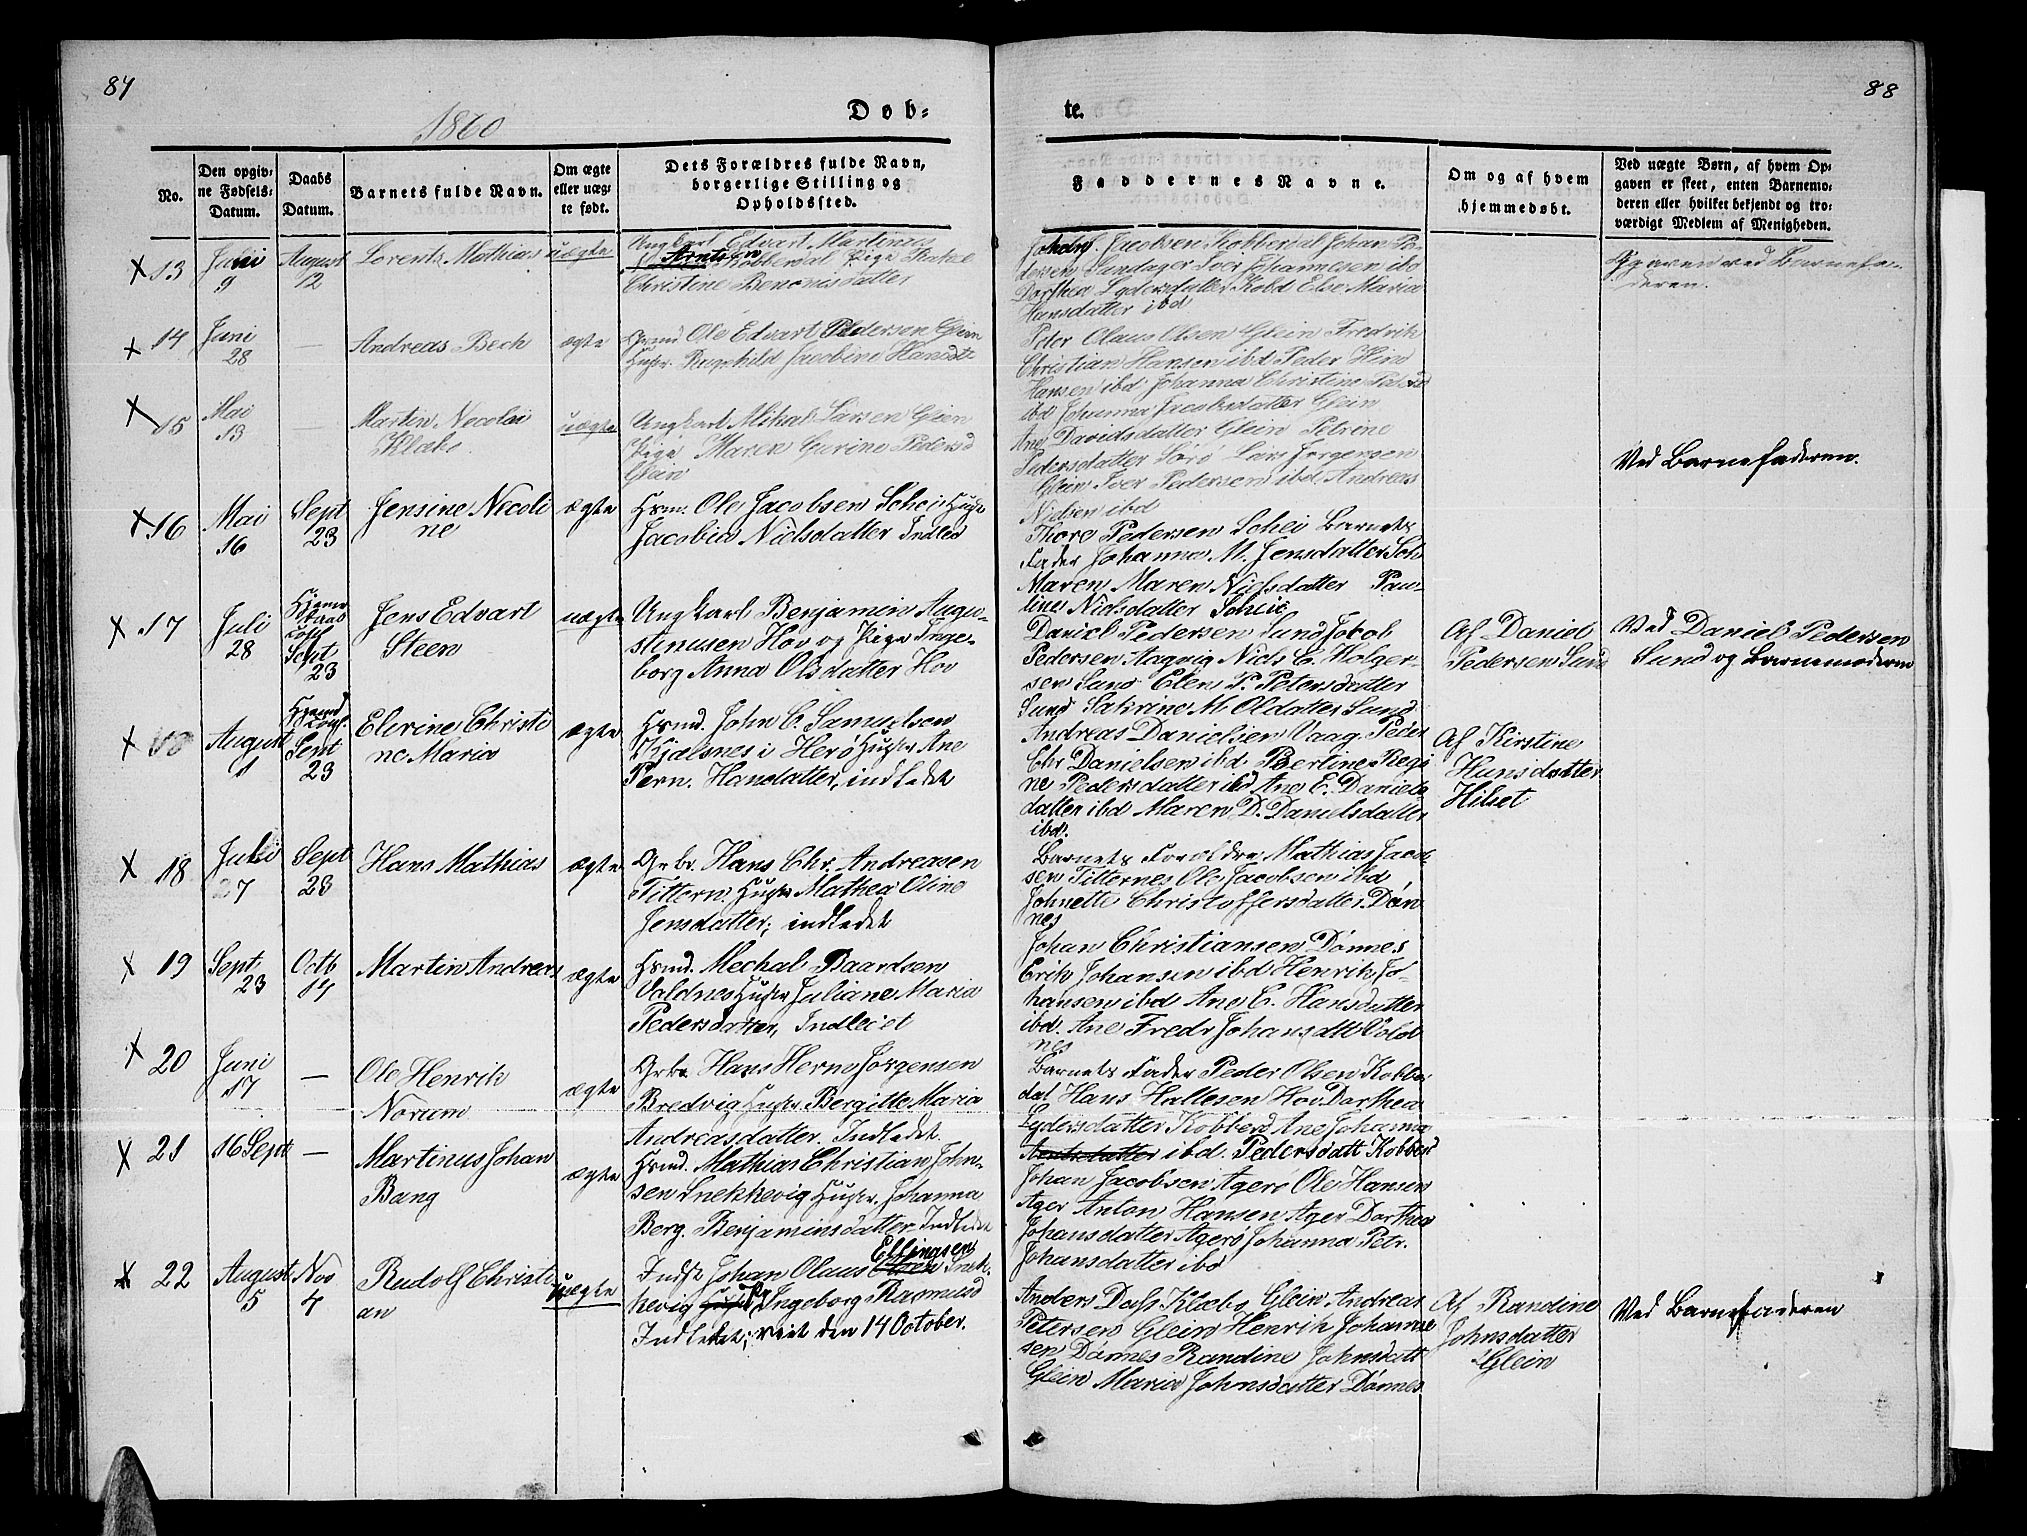 87
88
1860
Døb-
te.
No.
Den opgiv-
ne Fødsels-
Datum.
Daabs
Datum.
Barnets fulde Navn.
Om ægte
eller uæg-
te født.
Dets Forældres fulde Navn,
borgerlige Stilling og
Opholdssted.
Faddernes Navne.
Om og af hvem
hjemmedøbt.
Ved uægte Børn, af hvem Op-
gaven er skeet, enten Barnemo-
deren eller hvilket bekjendt og tro-
værdigt Medlem af Menigheden.
x 13
Juni
9
August
12
Lorents Mathias
uægte
Ungkarl Edvart Martinus
Arntsen Kobberdal Pige
Christine Benonisdatter
Jacobsen Kobberdal Johan Pe-
dersen Sandager Iver Johannesen ibd
Dorthea Lydersdatter Kobd Else Maria
Hansdatter ibd
Opgaven ved Barnefa-
deren.
x 14
Juni
28
—
Andreas Bech
ægte
Grmd Ole Edvart Pedersen Glein
Hustr. Ragnhild Jacobine Hansdt
Peter Olaus Olsen Glein Fredrik
Christian Hansen ibd Peder Hind
Hansen ibd Johanna Christine Pedersd
ibd Johanna Jacobsdatter Glein
x 15
Mai
13
—
Martin Necolai
Klæbo
uægte
Ungkarl Mikal Larsen Glein
Pige Maren Gurine Pedersd
Glein
Ane Davidsdatter Glein Petrine
Pedersdatter Sørø Lars Jørgensen
Glein Iver Pedersen ibd Andreas
Nielsen ibd
Ved Barnefaderen.
x 16
Mai
16
Sept
23
Jensine Necoli
ne
ægte
Hsmd. Ole Jacobsen Schei Hustr
Jacobia Nielsdatter Indled
Thore Pedersen Schei Barnets
Fader Johanna M. Jensdatter Sch.
Maren Maren Nielsdatter Pau-
line Nielsdatter Schei
x 17
Juli
28
Hjemme
daab
conf
Sept
23
Jens Edvart
Steen
uægte
Ungkarl Benjamin Augu-
stinusen Hov og Pige Inge-
borg Anna Olsdatter Hov
Daniel Pedersen Sund Jakob
Pedersen Aagnig Niels C. Holger-
sen Sund Elen P. Petersdatter
Sund Catrine M. Oldatter Sund
Af Daniel
Pedersen Sund
Ved Daniel Pedersen
Sund og Barnemoderen
x
August
1
Conf.
Sept
23
Elerine Christi
ne Maria
ægte
Hsmd. John C. Samuelsen
Kjælsnes i Herø Hustr Ane
Pern. Hansdatter, indledet
Andreas Danielsen Vaag Peder
Chr Danielsen ibd Berline Regi
ne Pedersdatter ibd Ane E. Daniels
datter ibd Maren D. Danielsdatter
ibd.
Af Kirstine
Hansdatter
Hilset
x 18
Juli
27
Sept
23
Hans Mathias
ægte
Grbr. Hans Chr. Andreasen
Tittern. Hustr Mathea Oline
Jensdatter; indledet
Barnets Forældre Mathias Jacob
sen Titternes Ole Jacobsen ibd
Johnette Christoffersdatter Døn
nes
x 19
Sept
23
Octb
14
Martin Andreas
ægte
Hsmd. Mechal Baardsen
Valdnes Hustr Juliane Maria
Pedersdatter, Indledet
Johan Christiansen Dønnes
Erik Johansen ibd Henrik Jo-
hansen ibd Ane C. Hansdatter
ibd. Ane Fredr Johansdtt Vold
nes
x 20
Juni
17
—
Ole Henrik
Norum
ægte
Grbr. Hans Herno Jørgensen
Bredvig Hustr Bergitte Maria
Andreasdatter. Indledet.
Barnets Fader Peder Olsen Kobber
dal Hans Hallesen Hov Dorthea
Lydersdatter Kobberd Ane Johanna
Arntsdatter ibd. Pedersdatt Kobberd
x 21
16 Sept
—
Martinus Johan
Bang
ægte
Hsmd. Mathias Christian John-
sen Snekkevig Hustr. Johanna
Berg. Benjaminsdatter Indledet
Johan Jacobsen Agerø Ole Hansen
Ager Anton Hansen Ager Dorthea
Johansdatter Agerø Johanna Petr.
Johansdatter ibd
x 22
August
5
Nov
4
Rudolf Christi
an
uægte
Indst Johan Olaus Ellingsen Snek-
kevig Ingeborg Rasmusd
Indledet; viet den 14 October.
Anders Dass Klæbo Glein Andreas
Petersen Glein Henrik Johanne
sen Dønnes Randine Johnsdatt
Glein Maria Johnsdatter Dønnes
Af Randine
Johnsdatter
Glein
Ved Barnefaderen